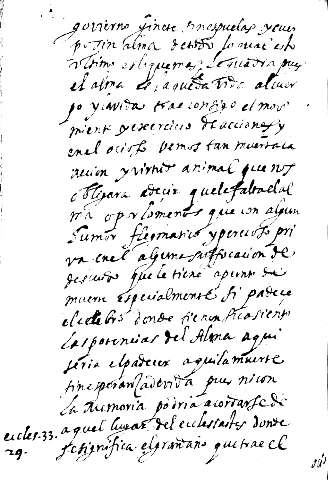 govierno ginete sin espuelas y cuer
po sin alma de todo lo qual esto
ultimo es lo que mas le quadra pues
el alma es la que da vida al cuer
po y la vida trae consigo el movi
miento y exercicio de acciones y
en el ocioso vemos tan muerta la
accion y virtud animal que nos
obligara a decir que le falta el al
ma o por lo menos que con algun
humor flegmatico y perezoso pri
va en el alguna suffocacion de
descuido que le tiene a punto de
muerte especialmente si padece
el celebro donde tienen su asiento
las potencias del Alma aqui
seria el padecer aqui la muerte
sin esperanza de vida pues ni con
la memoria podria acordarse de
aquel lugar del ecclesiastes donde
se significa el grandaño que trae el
eccles. 33.
29.